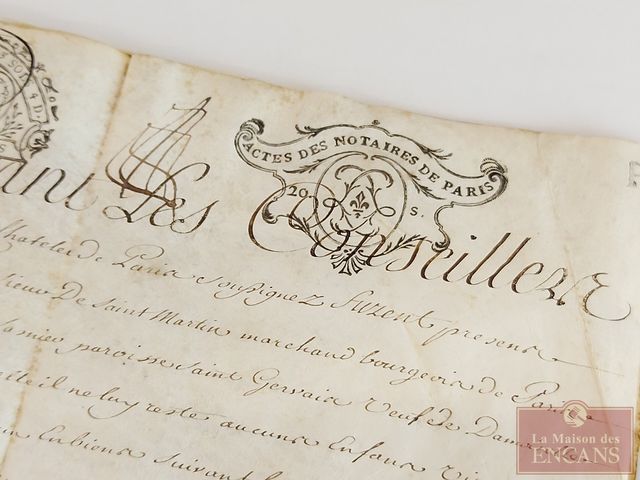 S SOLS 4 D.
ACTES DES NOTAIRES DE PARIS
20 S.
ant Les Conseillers
Chatelet de Paris soussignez furent presens
sieur De Saint Martin marchand bourgeois de Paris
paroisse saint Gervais veuf de Dame
il ne luy reste aucuns Enfans
En biens suivant
La Maison des
ENCANS